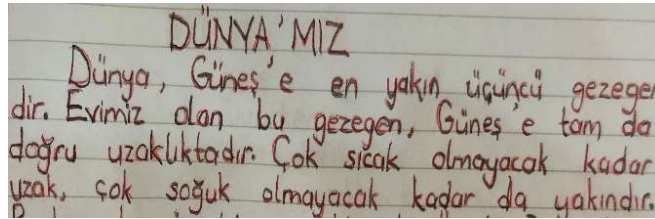 DÜNYA'MIZ
Dünya, Güneş'e en yakın üçüncü gezege
dir. Evimiz olan bu gezegen, Güneş'e tam da
doğru uzaklıktadır. Çok sıcak olmayacak kadar
uzak, çok soğuk olmayacak kadar da yakındır.